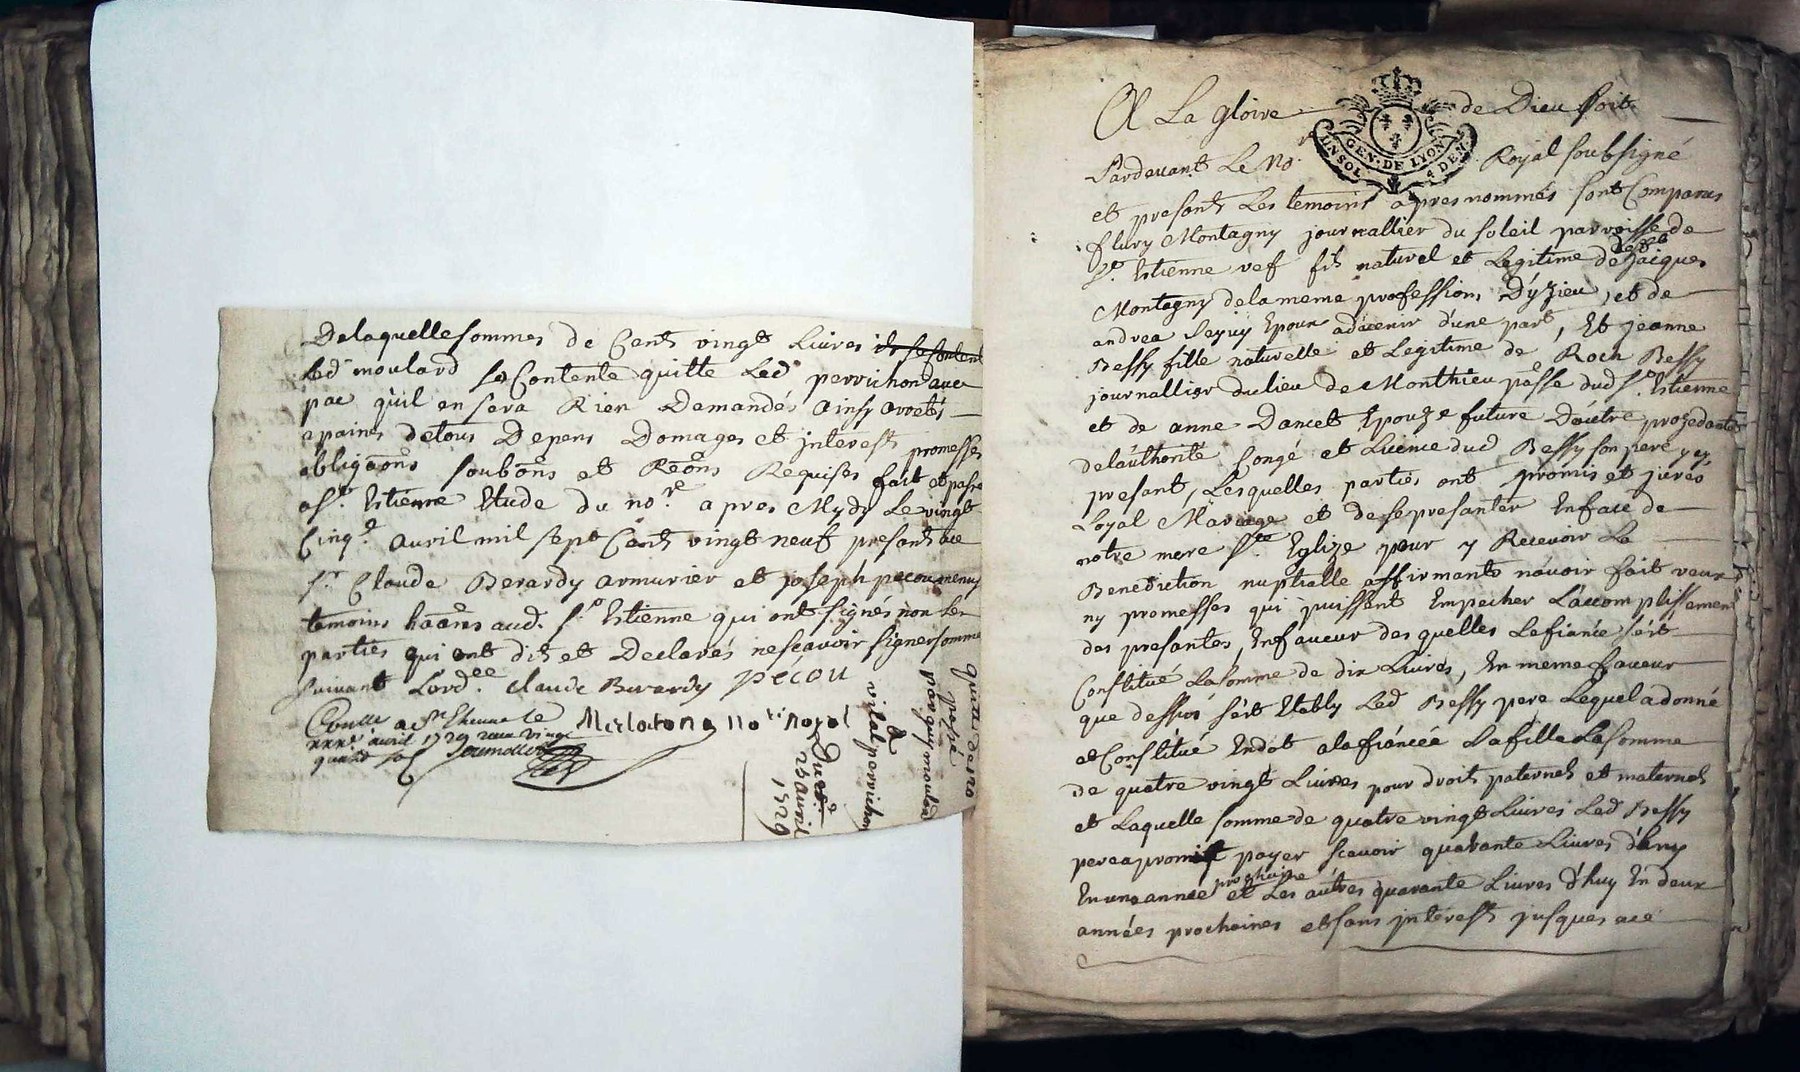 Delaquelle somme de Cent vingt Livres
Led moulard se Contente quitte Led perrichon avec
pac qu'il en sera Rien Demandés ainsy arretés
a paines de tous Depens Domages et interest promesses
obligaōns soubōns et Reōns Requises fait et passé
a St. Estienne Etude du nore. apres Mydy Le vingt
Cinqe. avril mil sept Cent vingt neuf presant ace
sr. Claude Berardy armurier et joseph pecou
temoins haōns aud. st. Estienne qui ont signés non Les
parties qui ont dit et Declarés ne scavoir signer somme
suivant Lordce. Claude Berardy pécou
Conlle a St Etienne le
avril 1729 vingt
quatre sols
not. Royal
par guy moulard
vital perrichon
Du
25 avril
1729
A La gloire de Dieu soit
GEN. DE LYON
UN SOL 4 DEN.
Pardevant Le No. Royal soubsigné
et presants Les temoins apres nommés sont Comparus
flury Montagny journallier du soleil parroisse de
St. Estienne vef fils naturel et Legitime de jacques
Montagny de la meme profession D'yzieu, et de
andrea Epoux advenir d'une part, Et jeanne
Bessy fille naturelle et Legitime de Roch Bessy
journallier du lieu de Monthieu psse dud St. Estienne
et de anne Dancet Epouze future D'autre prozedante
de l'authorité Congé et Licence dud Bessy son pere y
presant, Lesquelles parties ont promis et jurés
Loyal Mariage et de se presanter En face de
notre mere Ste Eglize pour y Recevoir La
Benediction nuptialle affirmants n'avoir fait veux
ny promesses qui puissent Empecher Laccomplissement
des presantes, En faveur des quelles Le fiancé s'est
Constitué La somme de dix Livres, En meme faveur
que dessus s'est Etably Led Bessy pere Lequel a donné
et Constitué En dot a la fiancée Sa fille La somme
de quatre vingt Livres pour droits paternels et maternels
et Laquelle somme de quatre vingt Livres Led Bessy
pere a promis payer scavoir quarante Livres d'huy
En une année prochaine et Les autres quarante Livres d'huy En deux
années prochaines et sans interest jusques ace